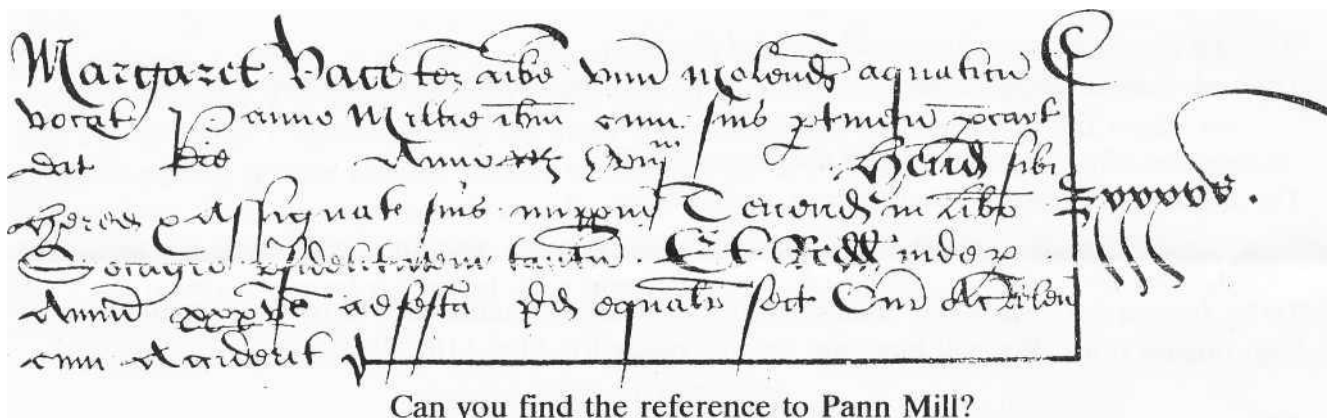 Margaret Pace ten unu molend aquaticu
vocat Panne Mille ibm cum suis ptinen p cart
dat die Anno Hend sibi
hered Assignat suis imppm Tenend in libo xxxvs.
Socagio p fidelitatem tantu Et Redd inde p
Annu xxxvs ad festa pd equalr sect Cur
cum Acciderit
Can you find the reference to Pann Mill?